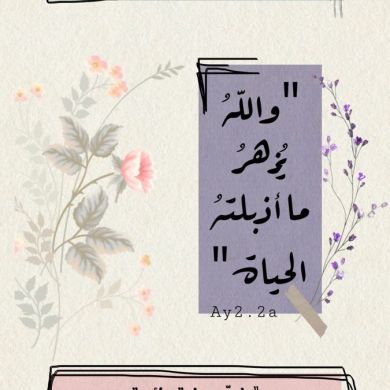 "واللّهُ
يُزهرُ
ما أذبلتهُ
الحياة"
Ay2.2a